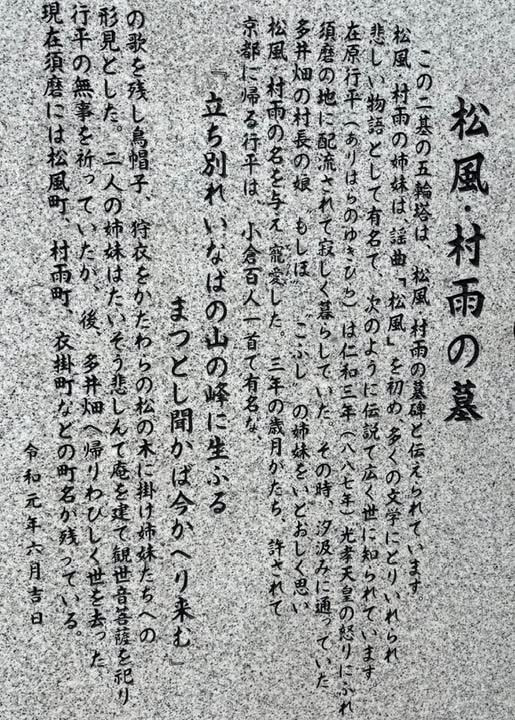 松風・村雨の墓
この二基の五輪塔は、松風・村雨の墓碑と伝えられています
松風・村雨の姉妹は、謡曲「松風」を初め多くの文学にとりいれられ
悲しい物語として有名で、次のように伝説で広く世に知られています
在原行平(ありはらのゆきひら)は仁和三年(八八七年)光孝天皇の怒りにふれ
須磨の地に配流されて寂しく暮らしていた。その時、汐汲みに通っていた
多井畑の村長の娘〝もしほ〟〝こふじ〟の姉妹をいとおしく思い
松風・村雨の名を与え寵愛した。三年の歳月がたち、許されて
京都に帰る行平は、小倉百人一首で有名な、
『立ち別れいなばの山の峰に生ふる
まつとし聞かば今かへり来む』
の歌を残し烏帽子、狩衣をかたわらの松の木に掛け姉妹たちへの
形見とした。二人の姉妹はたいそう悲しんで庵を建て観世音菩薩を祀り
行平の無事を祈っていたが、後、多井畑へ帰りわびしく世を去った。
現在須磨には松風町、村雨町、衣掛町などの町名が残っている。
令和元年六月吉日